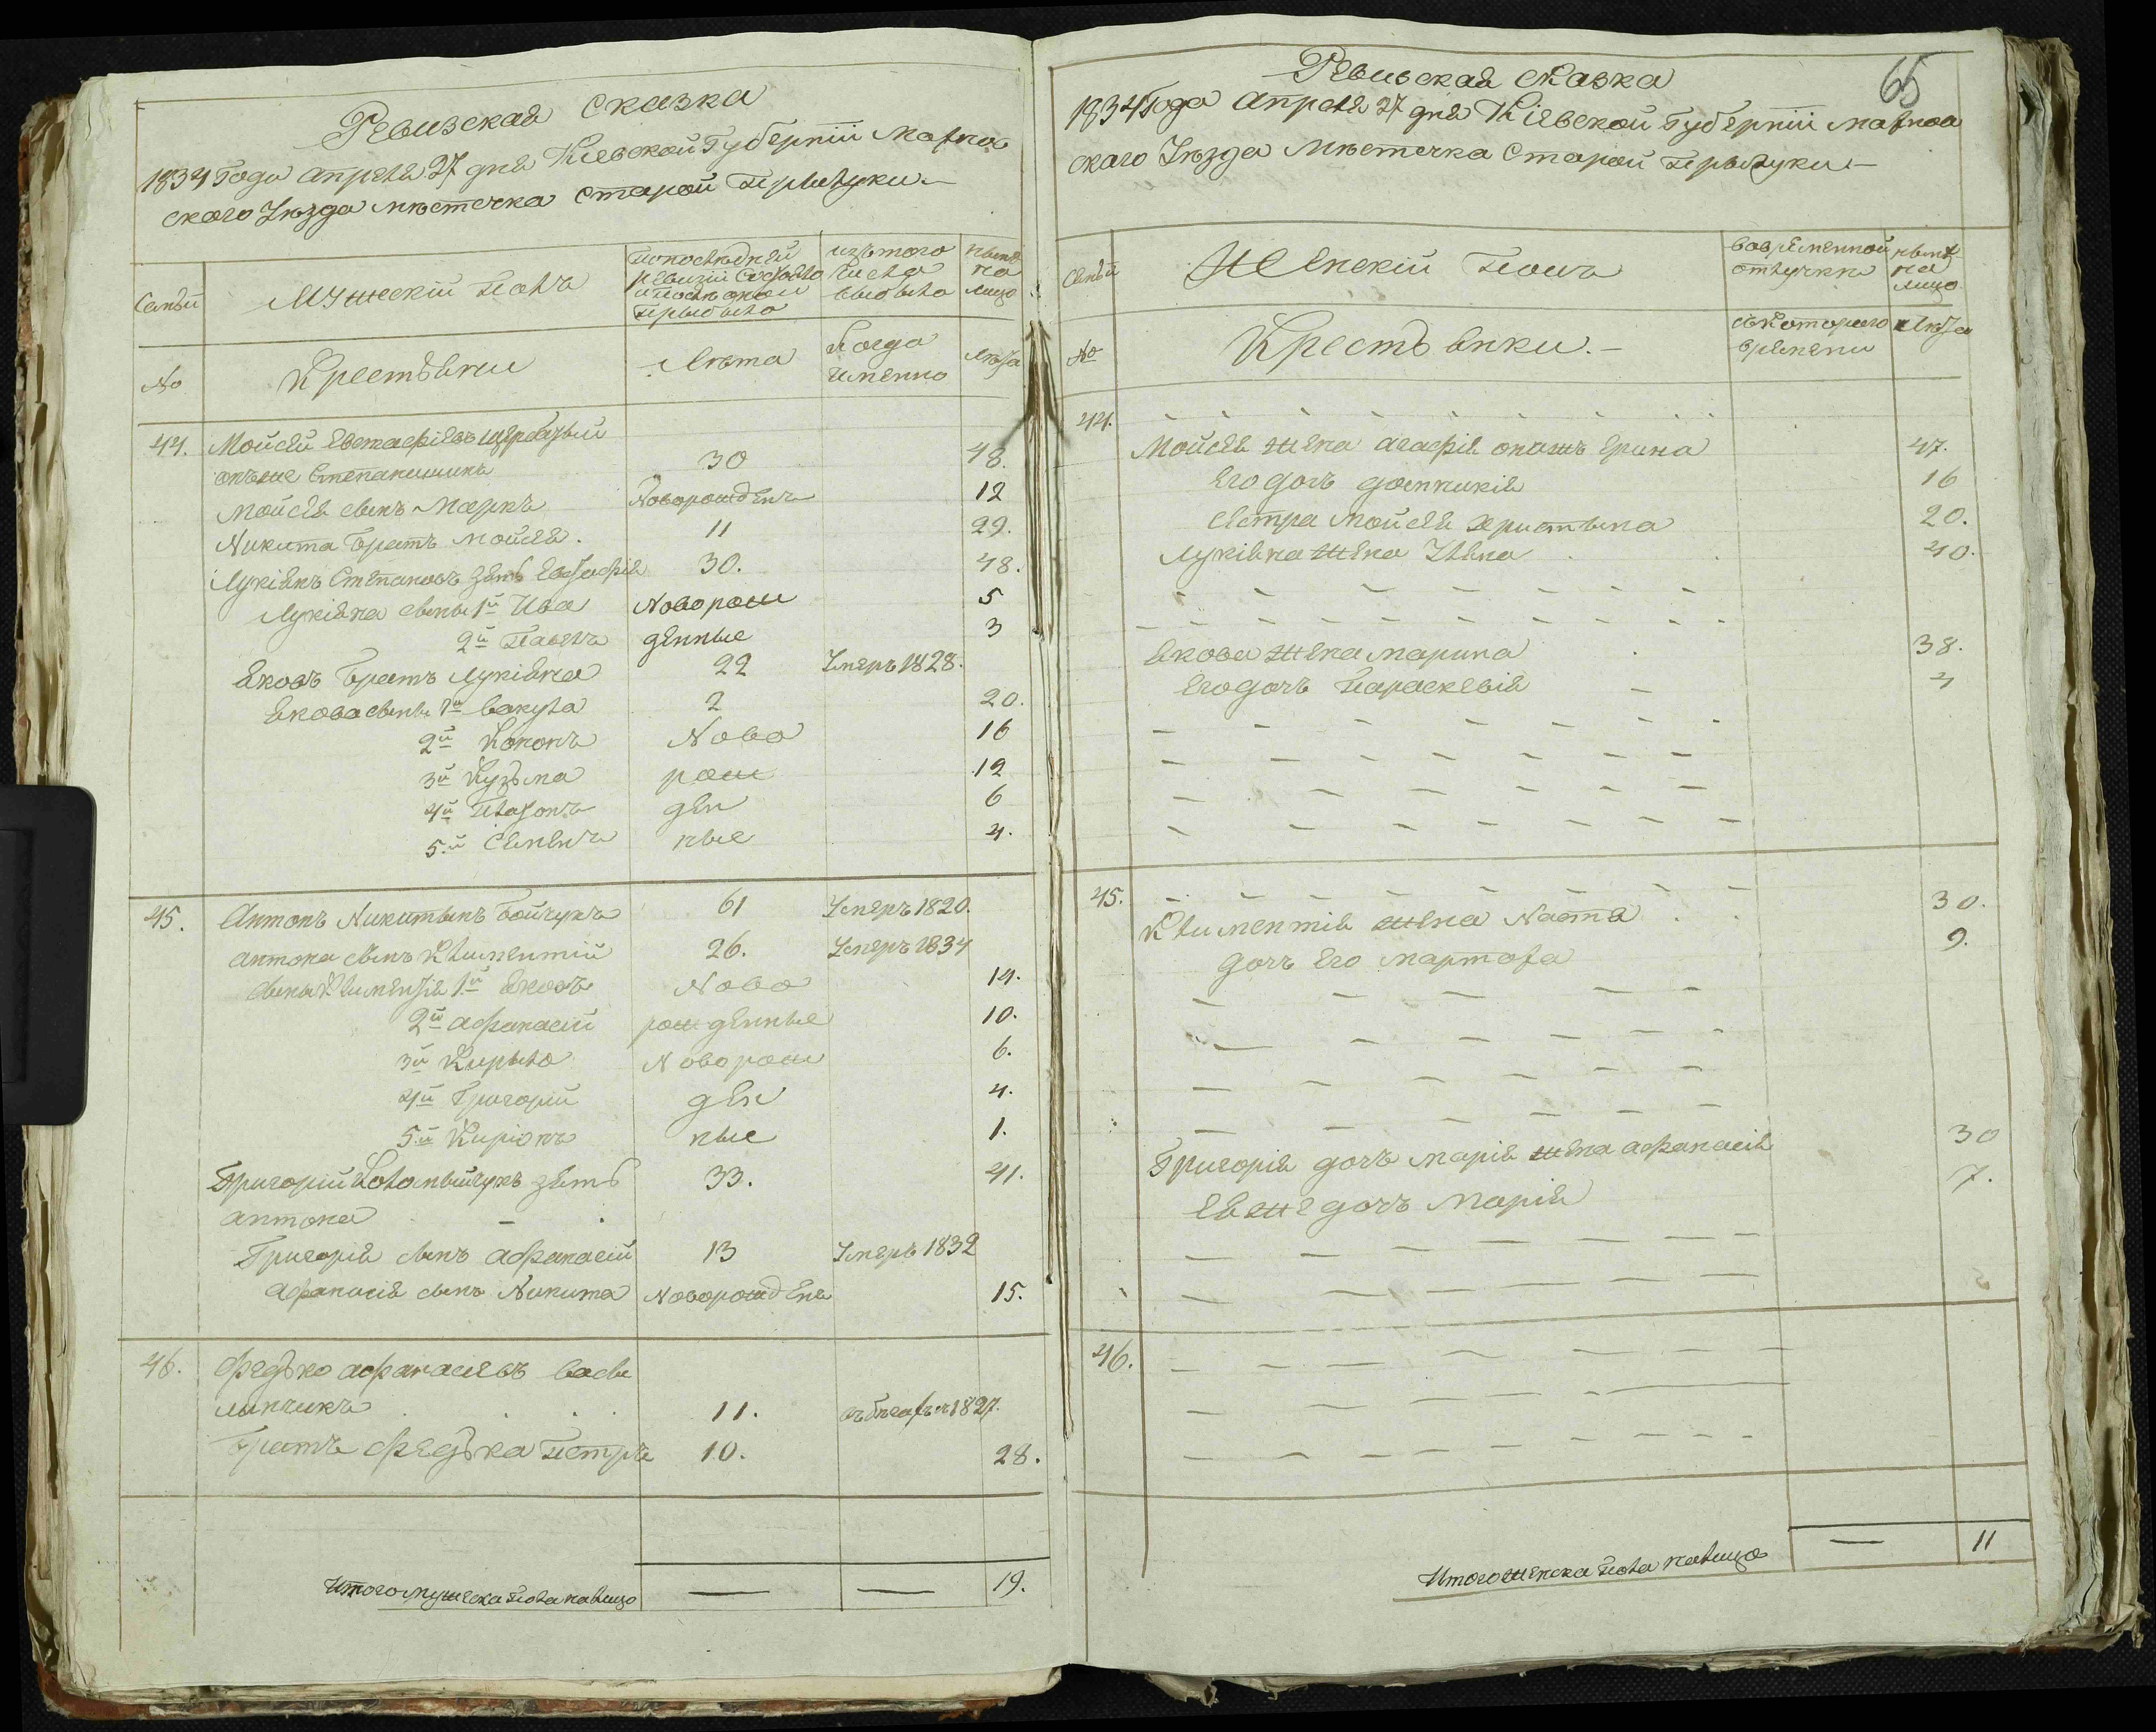 Ревизская сказка
1834 Года Апреля 27 дня Киевской Губернiи Махнов
ского Уезда местечка Старой Прылуки
Семьи
Мужескiй Полъ
По последней
ревизiи состояло
и после оной
прибыло
изъ того
числа
выбыло
ныне
на
лицо
№
Крестьяне
Лета
Когда
именно
Лета
44.
Мойсей Евстафiевъ Щербатый
онъ же Степанишинъ
30
48.
Мойсея сынъ Маркъ
Новорожденъ
12
Никита братъ Мойсея.
11
29.
Лукiянъ Степановъ зять Евстафiя
30.
48.
Лукiяна сыны 1й Ива
Новорож
5
2й Павелъ
денные
3
Яковъ братъ Лукiяна
22
Умеръ 1828.
Якова сыны 1й Вакула
2
20.
2й Кононъ
Ново
16
3й Кузьма
рож
12
4й Платонъ
ден
6
5й Семенъ
ные
4.
45.
Антонъ Никитынъ Бойчукъ
61
Умеръ 1820.
Антона сынъ Климентiй
26.
Умеръ 1834
Сыны Климентiя 1й Яковъ
Ново
14.
2й Афанасiй
рожденные
10.
3й Кирыло
Новорож
6.
4й Григорiй
ден
4.
5й Кирiонъ
ные
1.
Григорiй Коломыйчукъ зять
33.
41.
Антона
Григорiя сынъ Афанасiй
13
Умеръ 1832
Афанасiя сынъ Никита
Новорожденъ
15.
46.
Федько Афанасiевъ Васы
линчикъ
11.
въ бегахъ съ 1827.
Братъ Федька Петръ
10.
28.
Итого мужеска пола налицо
—
—
19.
65
Ревизская сказка
1834 Года Апреля 27 дня Кiевской Губернiи Махнов
ского Уезда Местечка Старой Прылуки
Семьи
Женскiй Полъ
Во временной
отлучке
ныне
на
лицо
№
Крестьянки.
Съ которого
времени
Лета
44.
Мойсея жена Агафiя она жъ Ерина
47.
Его дочь Домникiя
16
Сестра Мойсея Христына
20.
Лукiяна жена Уляна
40.
Якова жена Марина
38.
Его дочь Параскевiя
4
45.
Климентiя жена Настя
30.
Дочь Его Мартоха
9.
Григорiя дочь Марiя жена Афанасiя
30
Ея же дочь Марiя
7.
46.
Итого женска пола налицо
—
11